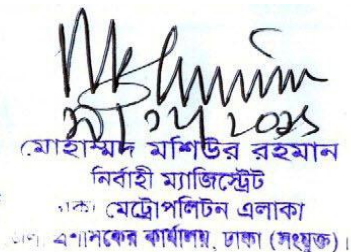 মোহাম্মদ মশিউর রহমান
নির্বাহী ম্যাজিস্ট্রেট
মেট্রোপলিটন এলাকা
কার্যালয়, ঢাকা (সংযুক্ত)